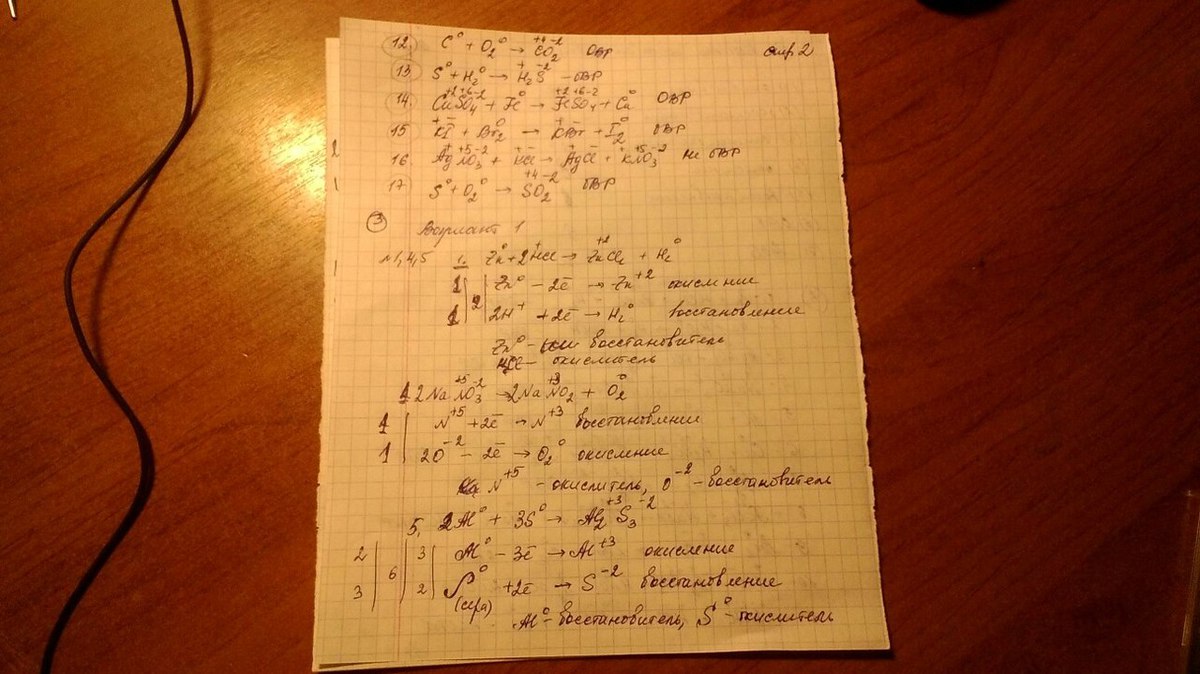 стр 2
12. C⁰ + O₂⁰ → C⁺⁴O₂⁻² ОВР
13 S⁰ + H₂⁰ → H₂⁺S⁻² – ОВР
14. Cu⁺²S⁺⁶O₄⁻² + Fe⁰ → Fe⁺²S⁺⁶O₄⁻² + Cu⁰ ОВР
15 K⁺I⁻ + Br₂⁰ → K⁺Br⁻ + I₂⁰ ОВР
16. Ag⁺N⁺⁵O₃⁻² + K⁺Cl⁻ → Ag⁺Cl⁻ + K⁺N⁺⁵O₃⁻² не ОВР
17. S⁰ + O₂⁰ → S⁺⁴O₂⁻² ОВР
3 Вариант 1
№1,4,5 1. Zn⁰ + 2H⁺Cl → Zn⁺²Cl₂ + H₂⁰
1 | 2 | Zn⁰ – 2ē → Zn⁺² окисление
1 | 2H⁺ + 2ē → H₂⁰ восстановление
Zn⁰ – восстановитель
HCl – окислитель
4 2NaN⁺⁵O₃⁻² → 2NaN⁺³O₂ + O₂⁰
1 | N⁺⁵ + 2ē → N⁺³ восстановление
1 | 2O⁻² – 2ē → O₂⁰ окисление
N⁺⁵ – окислитель, O⁻² – восстановитель
5. 2Al⁰ + 3S⁰ → Al₂⁺³S₃⁻²
2 | 6 | 3 | Al⁰ – 3ē → Al⁺³ окисление
3 | 2 | S⁰ + 2ē → S⁻² восстановление
(сера)
Al⁰ – восстановитель, S⁰ – окислитель